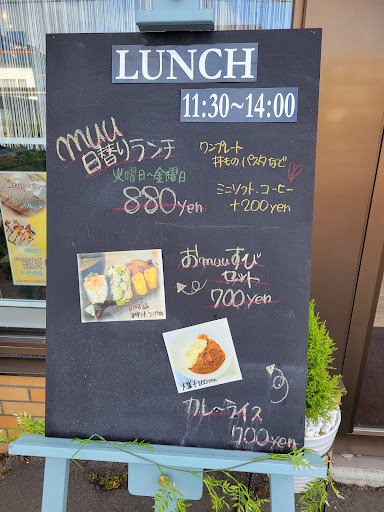 LUNCH
11:30~14:00
muu
日替りランチ
火曜日~金曜日
880yen
ワンプレート
丼もの パスタなど
ミニソフト、コーヒー
+200yen
おmuuすび
セット
700yen
カレーライス
700yen